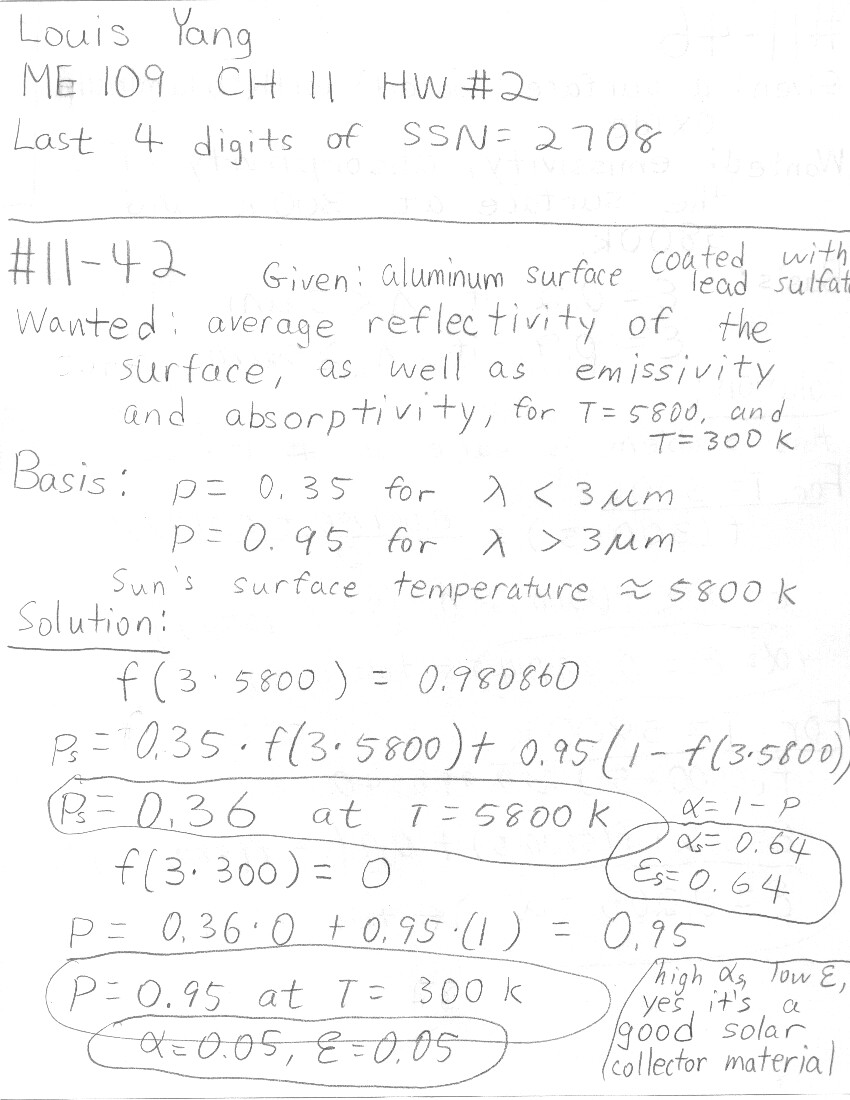 Louis Yang
ME 109 CH 11 HW #2
Last 4 digits of SSN = 2708
#11-42 Given: aluminum surface coated with
lead sulfat
Wanted: average reflectivity of the
surface, as well as emissivity
and absorptivity, for T = 5800, and
T = 300 K
Basis: ρ = 0.35 for λ < 3 μm
ρ = 0.95 for λ > 3 μm
Sun's surface temperature ≈ 5800 K
Solution:
f(3 · 5800) = 0.980860
ρs = 0.35 · f(3·5800) + 0.95(1 - f(3·5800))
ρs = 0.36 at T = 5800 K
α = 1 - ρ
αs = 0.64
εs = 0.64
f(3 · 300) = 0
ρ = 0.36 · 0 + 0.95 · (1) = 0.95
ρ = 0.95 at T = 300 K
α = 0.05, ε = 0.05
high αs, low ε,
yes it's a
good solar
collector material